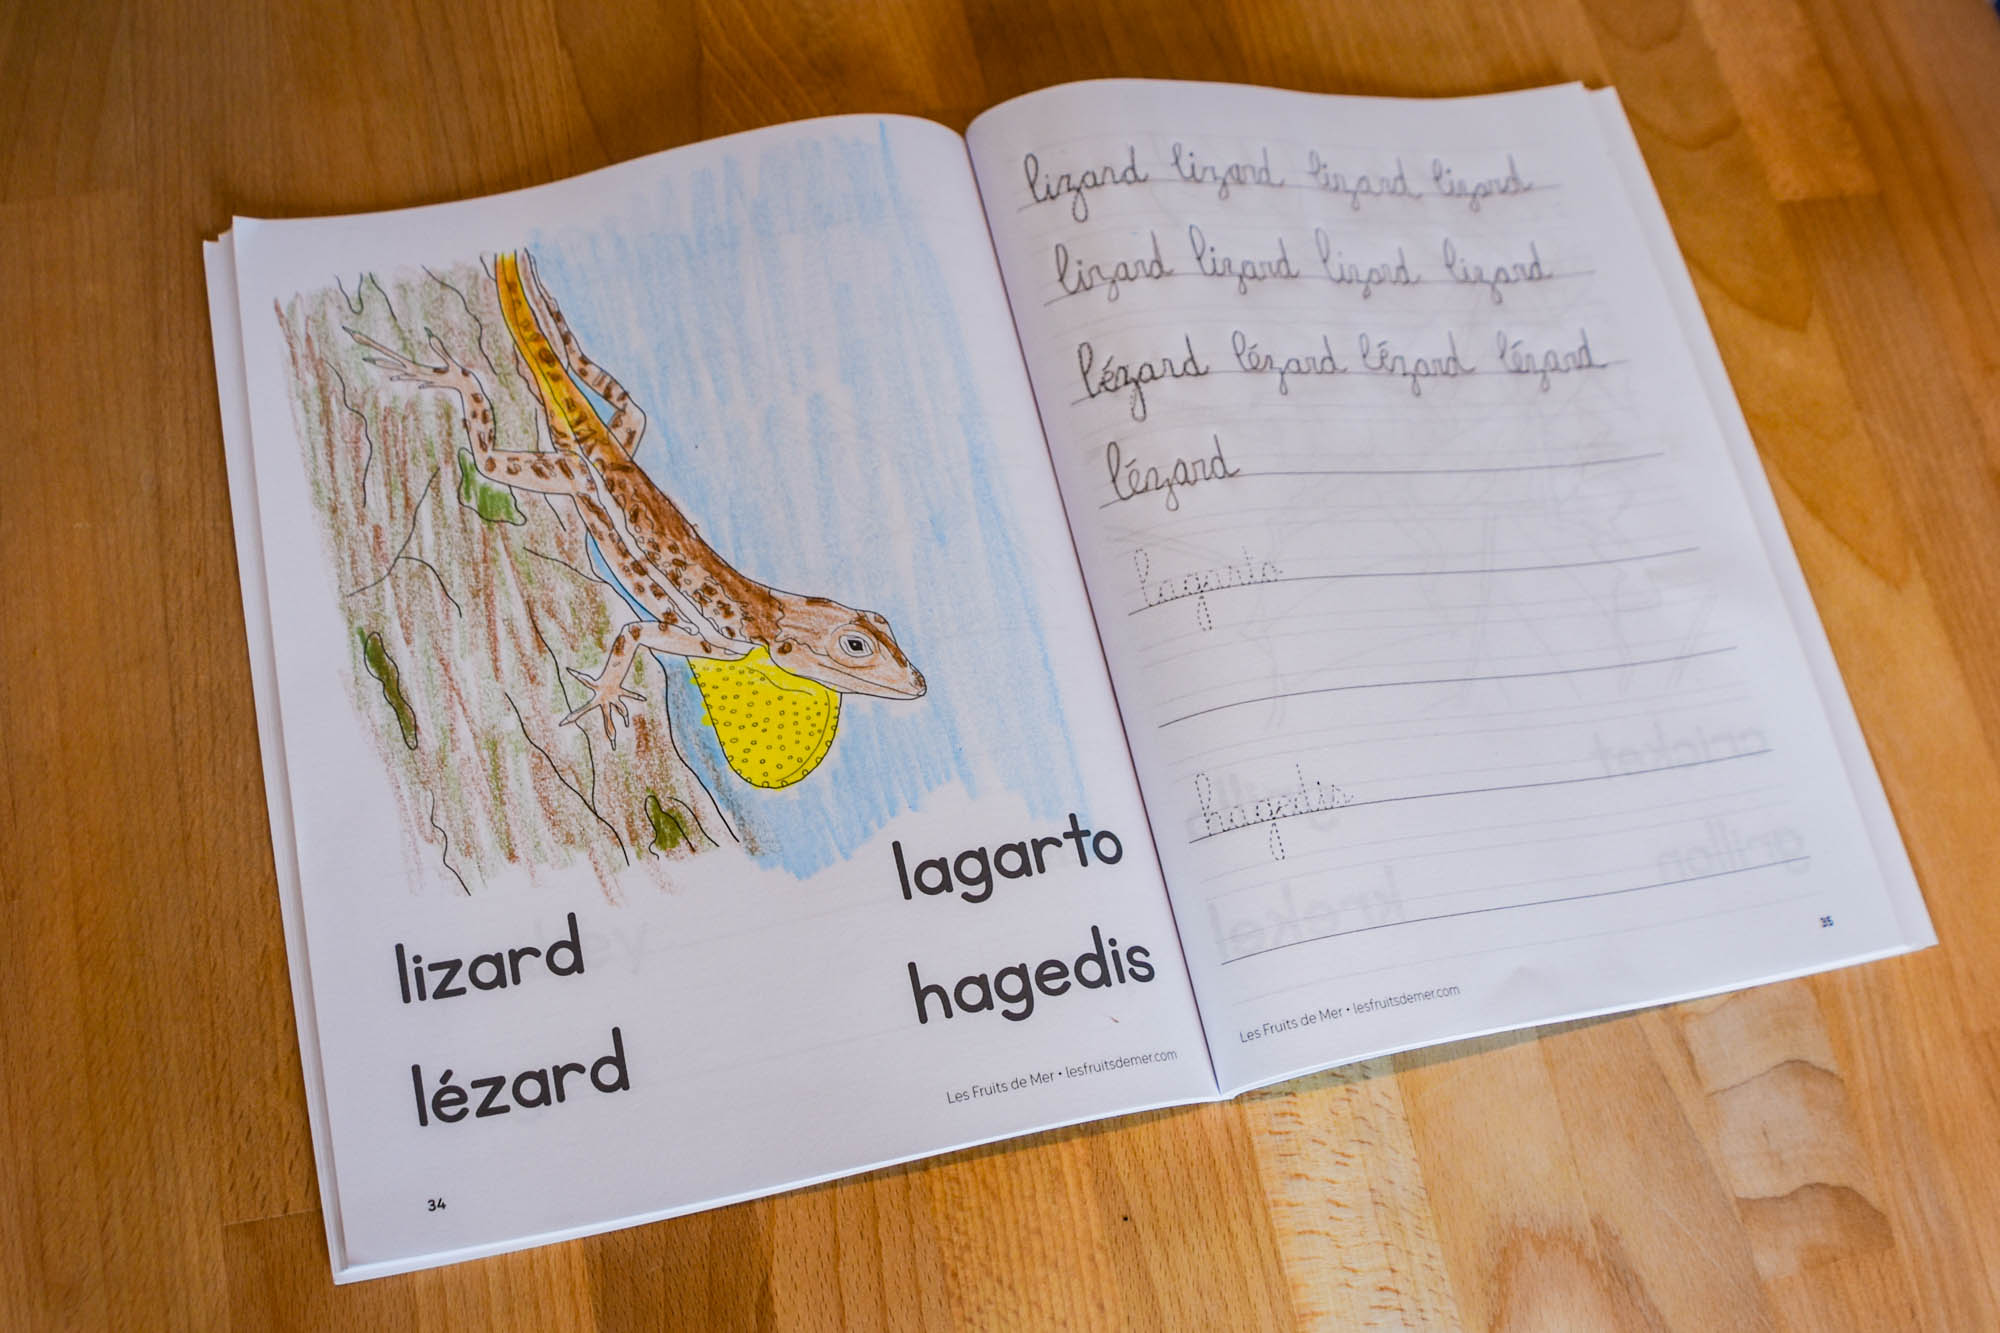 lizard
lézard
lagarto
hagedis
Les Fruits de Mer • lesfruitsdemer.com
34
lizard lizard lizard lizard
lizard lizard lizard lizard
lézard lézard lézard lézard
lézard
lagarto
hagedis
35
Les Fruits de Mer • lesfruitsdemer.com